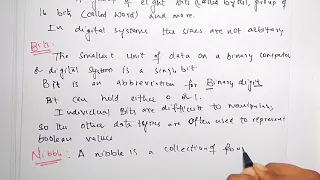 of eight bits (called byte), group of
16 bits (called Word) and more.
In digital systems the sizes are not arbitary
Bits:
The smallest unit of data on a binary computer
& digital system is a single bit
Bit is an abbreviation for Binary digit
Bit can hold either 0 or 1.
Individual Bits are difficult to manipulate,
so the other data types are often used to represent
boolean values
Nibble: A nibble is a collection of fou